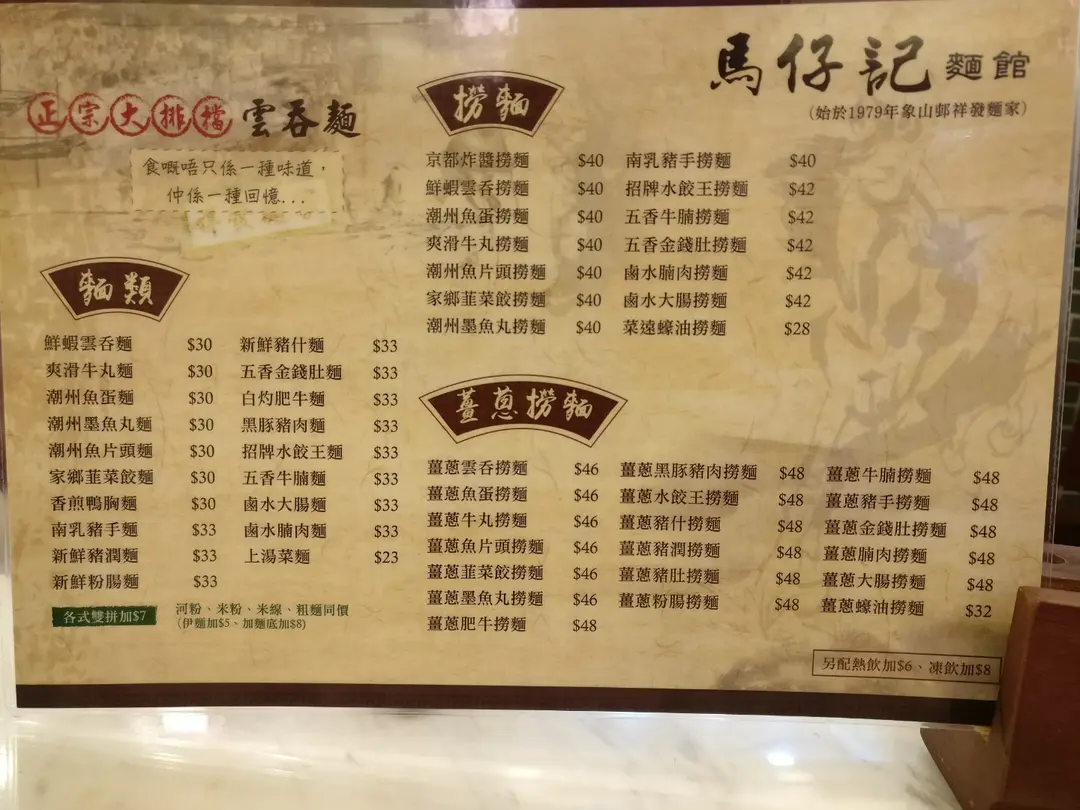 馬仔記麵館
(始於1979年象山邨祥發麵家)
正宗大排檔雲吞麵
食嘅唔只係一種味道，
仲係一種回憶...
麵類
鮮蝦雲吞麵 $30
爽滑牛丸麵 $30
潮州魚蛋麵 $30
潮州墨魚丸麵 $30
潮州魚片頭麵 $30
家鄉韮菜餃麵 $30
香煎鴨胸麵 $30
南乳豬手麵 $33
新鮮豬潤麵 $33
新鮮粉腸麵 $33
新鮮豬什麵 $33
五香金錢肚麵 $33
白灼肥牛麵 $33
黑豚豬肉麵 $33
招牌水餃王麵 $33
五香牛腩麵 $33
鹵水大腸麵 $33
鹵水腩肉麵 $33
上湯菜麵 $23
各式雙拼加$7
河粉、米粉、米線、粗麵同價
(伊麵加$5、加麵底加$8)
撈麵
京都炸醬撈麵 $40
鮮蝦雲吞撈麵 $40
潮州魚蛋撈麵 $40
爽滑牛丸撈麵 $40
潮州魚片頭撈麵 $40
家鄉韮菜餃撈麵 $40
潮州墨魚丸撈麵 $40
南乳豬手撈麵 $40
招牌水餃王撈麵 $42
五香牛腩撈麵 $42
五香金錢肚撈麵 $42
鹵水腩肉撈麵 $42
鹵水大腸撈麵 $42
菜遠蠔油撈麵 $28
薑蔥撈麵
薑蔥雲吞撈麵 $46
薑蔥魚蛋撈麵 $46
薑蔥牛丸撈麵 $46
薑蔥魚片頭撈麵 $46
薑蔥韮菜餃撈麵 $46
薑蔥墨魚丸撈麵 $46
薑蔥肥牛撈麵 $48
薑蔥黑豚豬肉撈麵 $48
薑蔥水餃王撈麵 $48
薑蔥豬什撈麵 $48
薑蔥豬潤撈麵 $48
薑蔥豬肚撈麵 $48
薑蔥粉腸撈麵 $48
薑蔥牛腩撈麵 $48
薑蔥豬手撈麵 $48
薑蔥金錢肚撈麵 $48
薑蔥腩肉撈麵 $48
薑蔥大腸撈麵 $48
薑蔥蠔油撈麵 $32
另配熱飲加$6、凍飲加$8